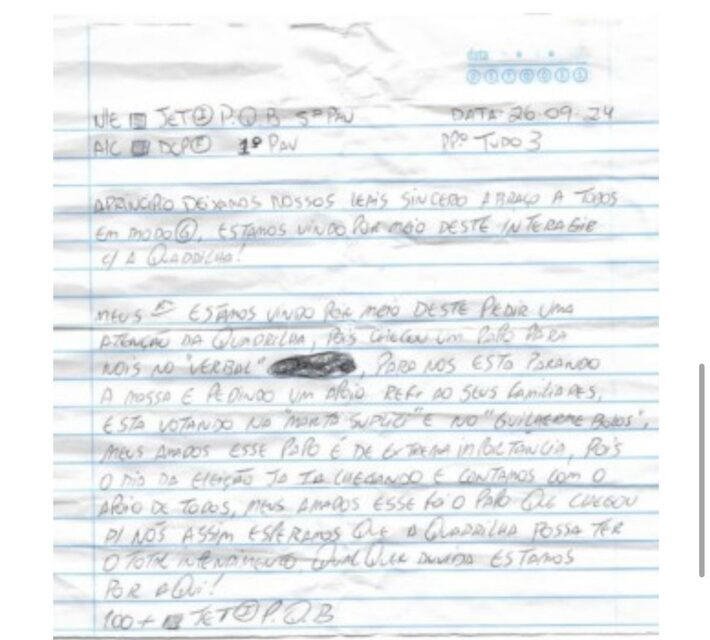 data
V/E JET I P.Q.B 5º PAV DATA: 26.09.24
A/C DCP I 1º PAV PPº TUDO 3
APRINCIPIO DEIXAMOS NOSSOS LEAIS SINCERO ABRAÇO A TODOS
EM MODO G, ESTAMOS VINDO POR MEIO DESTE INTERAGIR
C/ A QUADRILHA!
MEUS ESTAMOS VINDO POR MEIO DESTE PEDIR UMA
ATENÇÃO DA QUADRILHA, POIS CHEGOU UM PAPO PARA
NOIS NO "VERBAL" , PARA NOS ESTA PARANDO
A MOSSA E PEDINDO UM APOIO REF: AO SEUS FAMILIARES,
ESTA VOTANDO NA "MARTA SUPLICI" E NO "GUILHERME BOLOS",
MEUS AMADOS ESSE PAPO É DE EXTREMA INPORTANCIA, POIS
O DIA DA ELEIÇÃO JA TA CHEGANDO E CONTAMOS COM O
APOIO DE TODOS, MEUS AMADOS ESSE FOI O PAPO QUE CHEGOU
P/ NÓS ASSIM ESPERAMOS QUE A QUADRILHA POSSA TER
O TOTAL INTENDIMENTO, QUALQUER DUVIDA ESTAMOS
POR AQUI!
100+ JET I P.Q.B